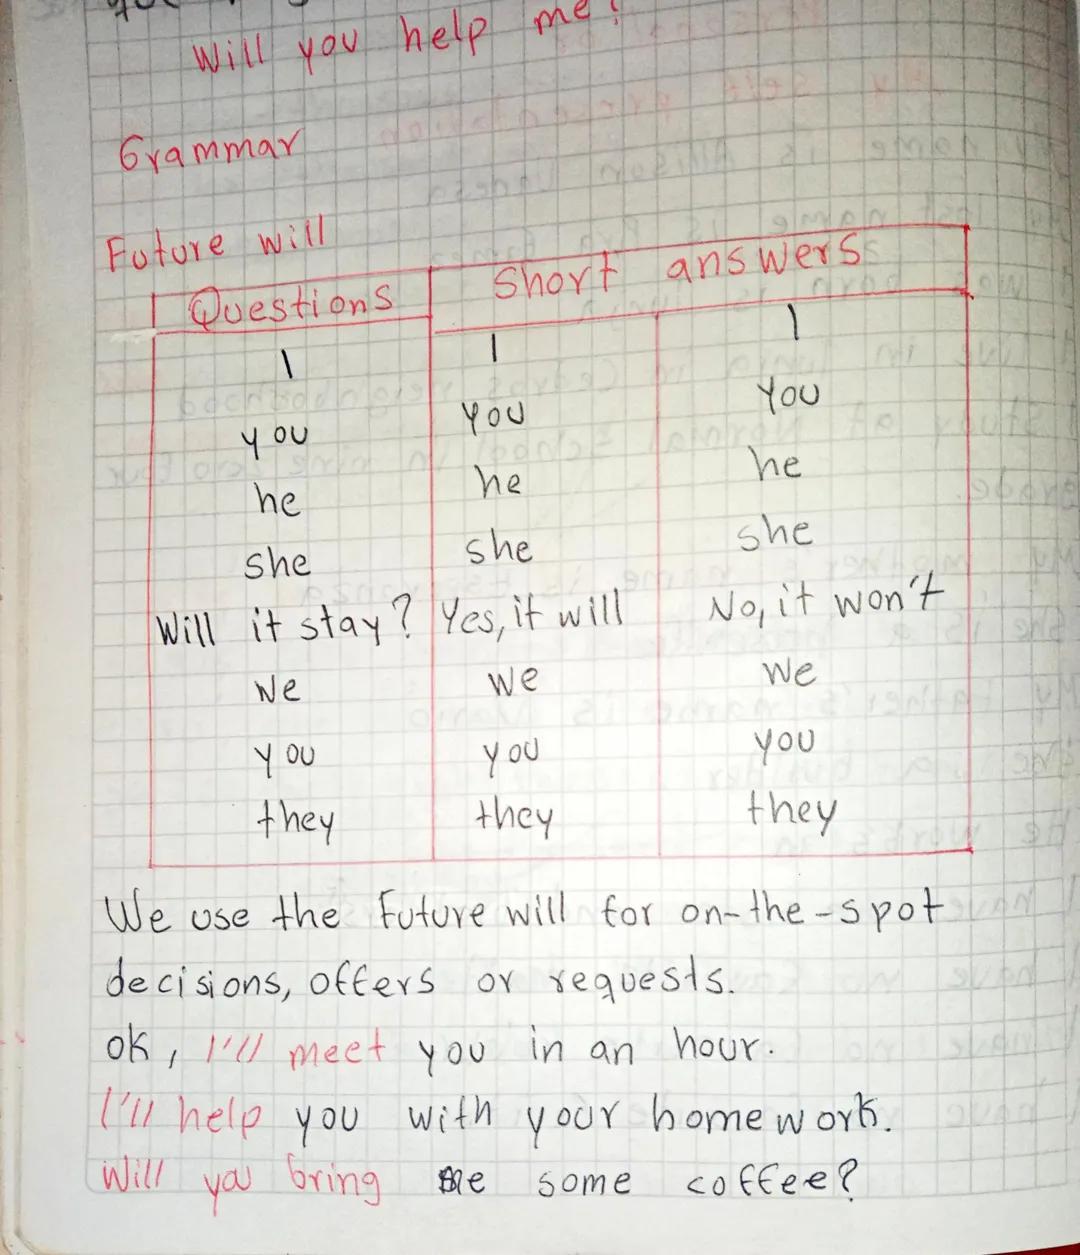 Will you help me?
Grammar
Future will
Questions Short answers
I I I
you you you
he he he
she she she
Will it stay? Yes, it will No, it won't
we we we
you you you
they they they
We use the Future will for on-the-spot
decisions, offers or requests.
ok, I'll meet you in an hour.
I'll help you with your homework.
Will you bring me some coffee?